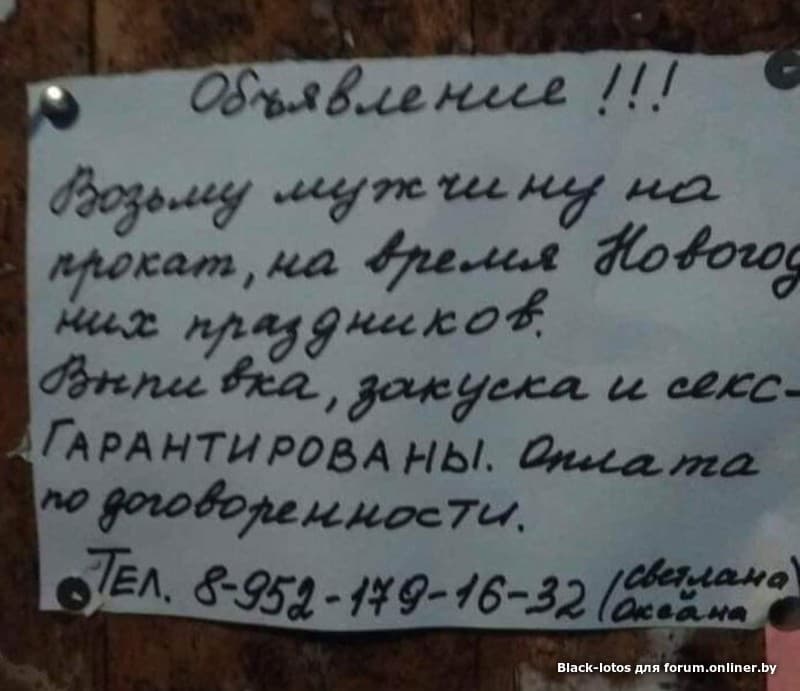 Объявление !!!
Возьму мужчину на
прокат, на время Новогод
них праздников.
Выпивка, закуска и секс-
ГАРАНТИРОВАНЫ. Оплата
по договоренности.
ТЕЛ. 8-952-179-16-32 (светлана)
Оксана
Black-lotos для forum.onliner.by